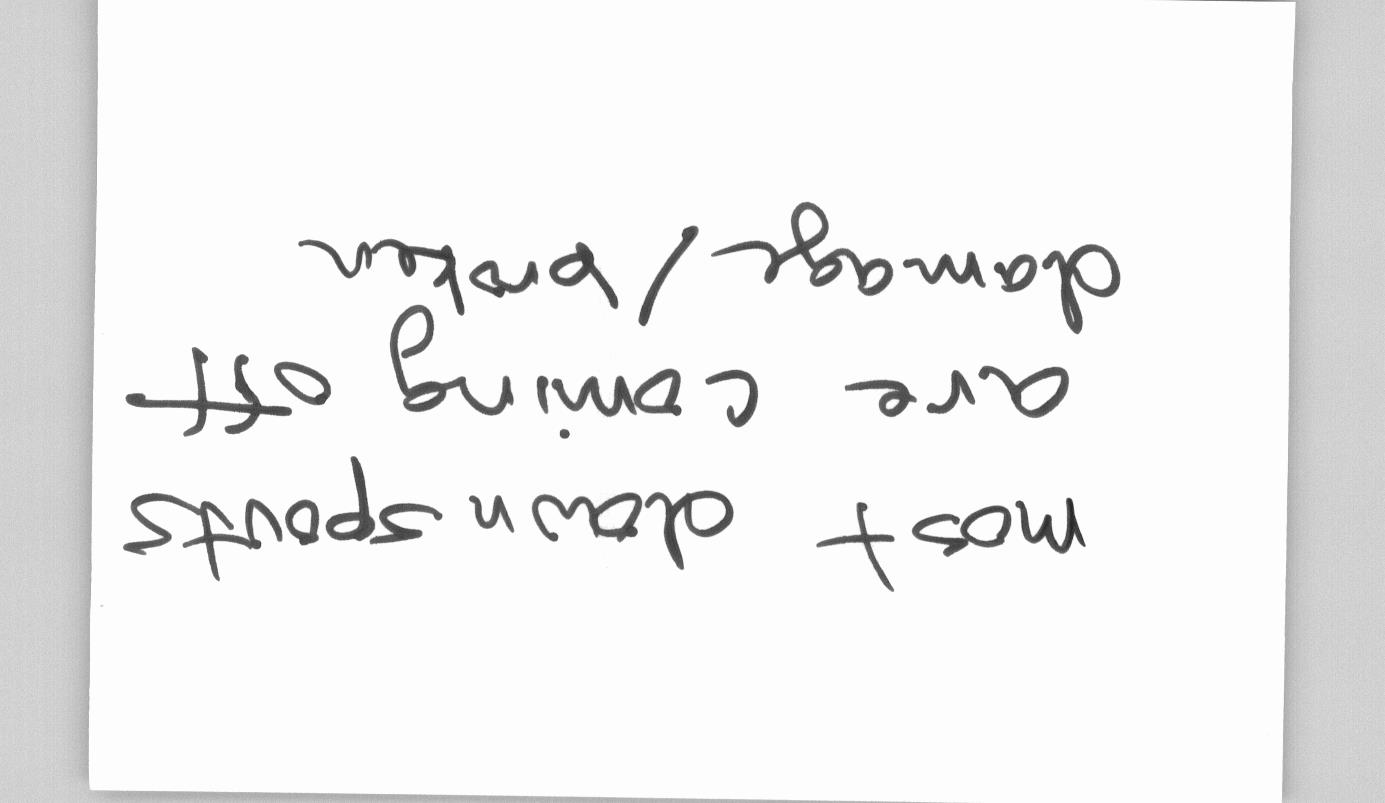 most down spouts
are coming off
damage / broken